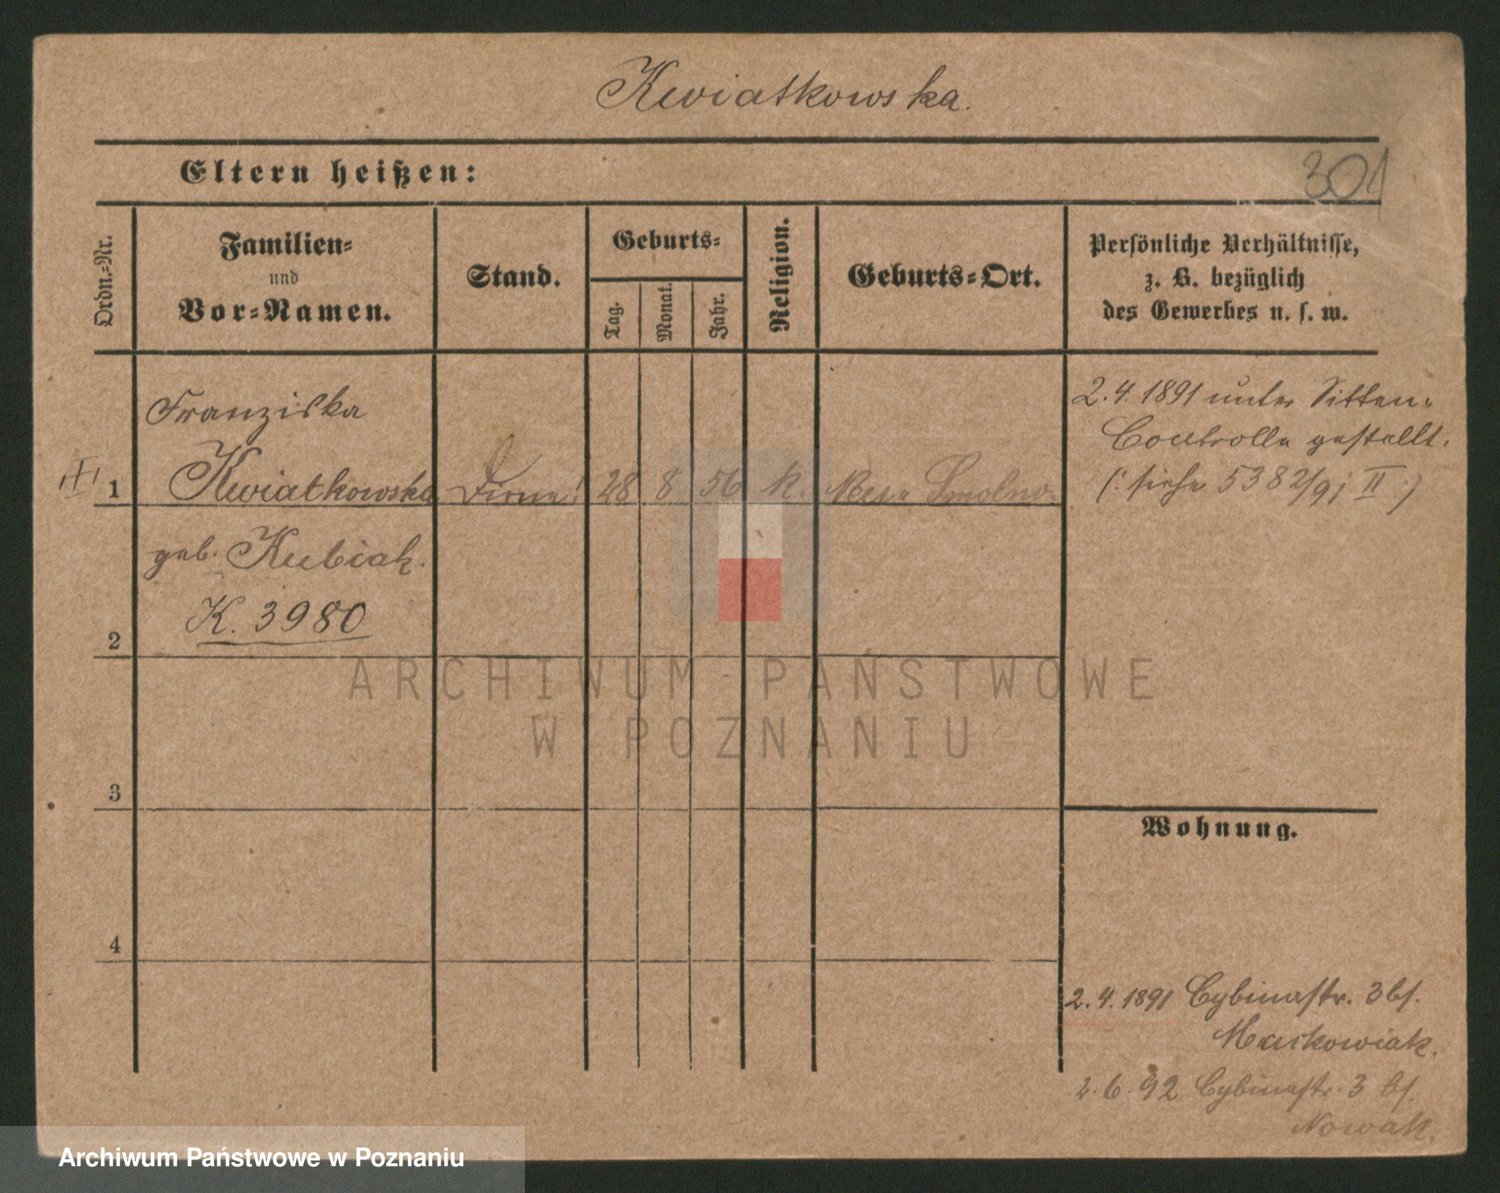 Kwiatkowska.
Eltern heißen:
301
Ordn.-Nr.
Familien-
und
Vor-Namen.
Stand.
Geburts-
Tag.
Monat.
Jahr.
Religion.
Geburts-Ort.
Persönliche Verhältnisse,
z. B. bezüglich
des Gewerbes u. s. w.
Franziska
1 Kwiatkowska Dirne! 28 8 56 k. Smolno.
geb. Kubiak.
K. 3980
2
3
4
2.4.1891 unter Sitten-
Controlle gestellt.
(: siehe 5382/91 II :)
Wohnung.
2.4.1891 Cybinastr. 3 bf.
Markowiak.
2.6.92 Cybinastr. 3 bf.
Nowak.
ARCHIWUM PAŃSTWOWE
W POZNANIU
Archiwum Państwowe w Poznaniu